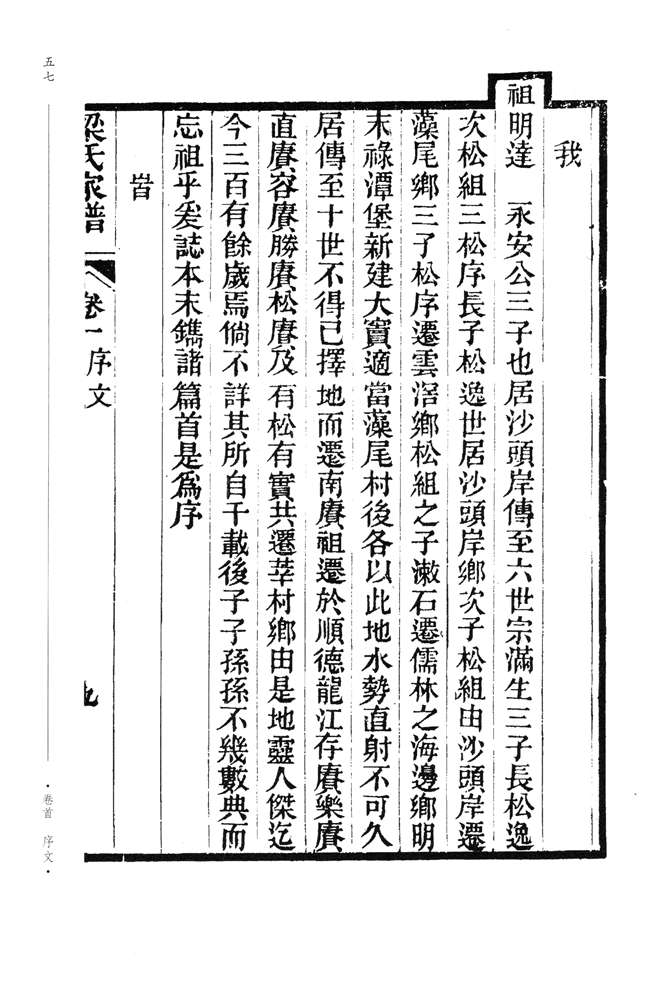 我
祖明達　永安公三子也居沙頭岸傳至六世宗滿生三子長松逸
次松組三松序長子松逸世居沙頭岸鄉次子松組由沙頭岸遷
藻尾鄉三子松序遷雲滘鄉松組之子漱石遷儒林之海邊鄉明
末祿潭堡新建大竇適當藻尾村後各以此地水勢直射不可久
居傳至十世不得已擇地而遷南賡祖遷於順德龍江存賡樂賡
直賡容賡勝賡松賡及有松有實共遷莘村鄉由是地靈人傑迄
今三百有餘歲焉倘不詳其所自千載後子子孫孫不幾數典而
忘祖乎爰誌本末鐫諸篇首是為序
昔
梁氏家譜　卷一序文　九
五七
·卷首　序文·